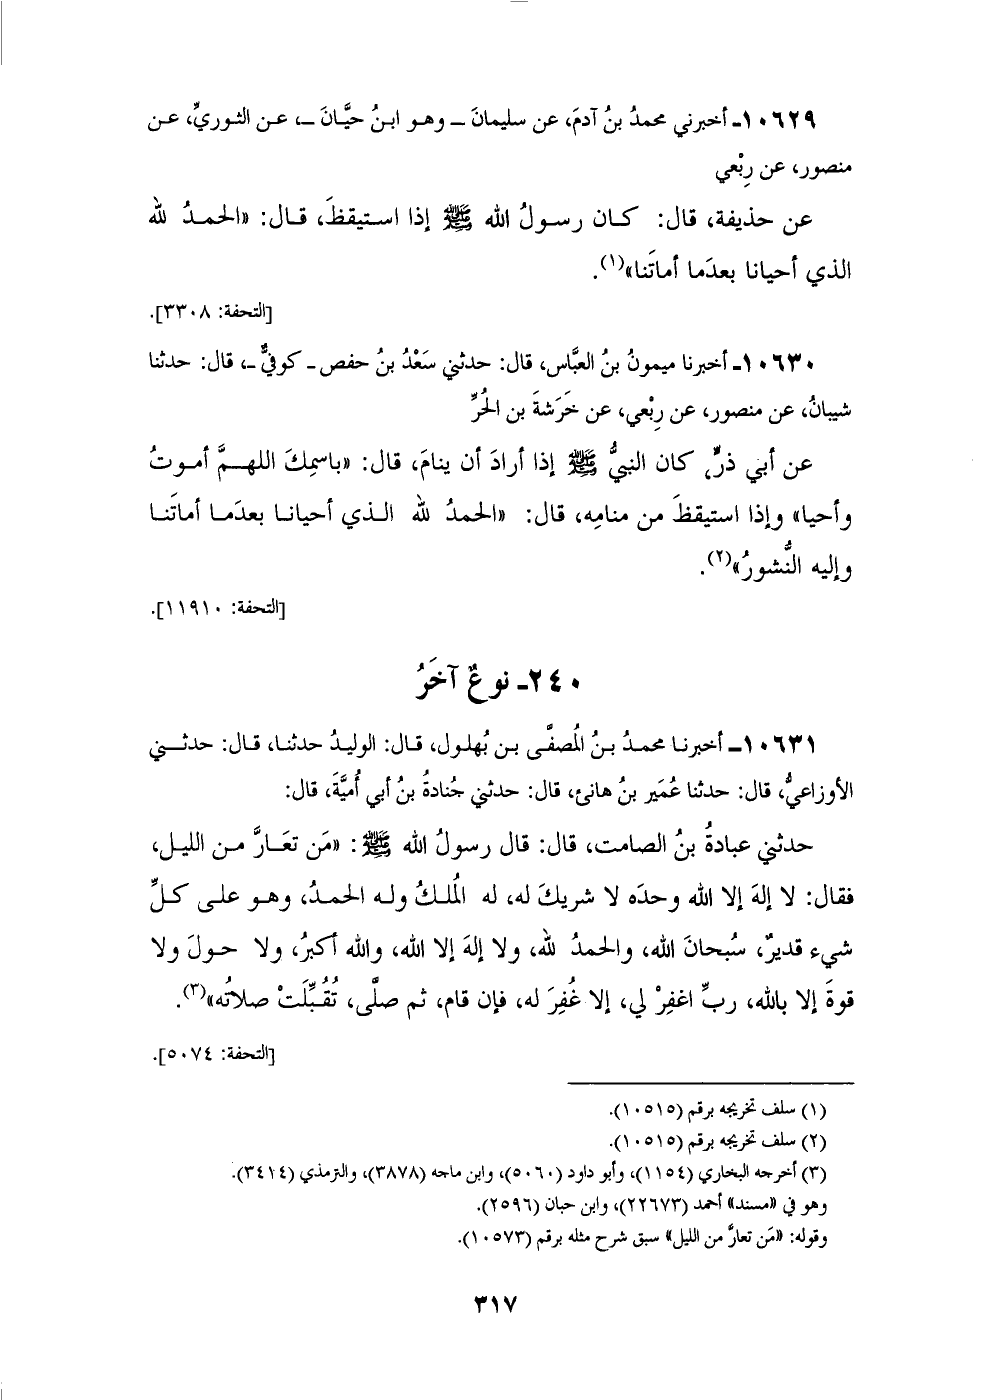 ١٠٦٢٩ـ أخبرني محمدُ بنُ آدمَ، عن سليمانَ ــ وهو ابنُ حيَّانَ ــ، عن الثوريِّ، عن
منصور، عن رِبْعي
عن حذيفة، قال: كان رسولُ الله ﷺ إذا استيقظَ، قال: «الحمدُ لله
الذي أحيانا بعدَما أماتَنا»(١).
[التحفة: ٣٣٠٨].
١٠٦٣٠ـ أخبرنا ميمونُ بنُ العبَّاس، قال: حدثني سَعْدُ بنُ حفص ـ كوفيٌّ ـ، قال: حدثنا
شيبانُ، عن منصور، عن رِبْعي، عن خَرَشةَ بن الحُرِّ
عن أبي ذرٍّ، كان النبيُّ ﷺ إذا أرادَ أن ينامَ، قال: «باسمِكَ اللهمَّ أموتُ
وأحيا» وإذا استيقظَ من منامِه، قال: «الحمدُ لله الذي أحيانا بعدَما أماتَنا
وإليه النُّشورُ»(٢).
[التحفة: ١١٩١٠].
٢٤٠ـ نوعٌ آخَرُ
١٠٦٣١ـ أخبرنا محمدُ بنُ المُصفَّى بن بُهلول، قال: الوليدُ حدثنا، قال: حدثني
الأوزاعيُّ، قال: حدثنا عُمَير بنُ هانئ، قال: حدثني جُنادةُ بنُ أبي أُميَّةَ، قال:
حدثني عبادةُ بنُ الصامت، قال: قال رسولُ الله ﷺ: «مَن تعَارَّ من الليل،
فقال: لا إلهَ إلا الله وحدَه لا شريكَ له، له المُلكُ وله الحمدُ، وهو على كلِّ
شيء قديرٌ، سُبحانَ الله، والحمدُ لله، ولا إلهَ إلا الله، والله أكبرُ، ولا حولَ ولا
قوةَ إلا بالله، ربِّ اغفِرْ لي، إلا غُفِرَ له، فإن قام، ثم صلَّى، تُقُبِّلَتْ صلاتُه»(٣).
[التحفة: ٥٠٧٤].
(١) سلف تخريجه برقم (١٠٥١٥).
(٢) سلف تخريجه برقم (١٠٥١٥).
(٣) أخرجه البخاري (١١٥٤)، وأبو داود (٥٠٦٠)، وابن ماجه (٣٨٧٨)، والترمذي (٣٤١٤).
وهو في «مسند» أحمد (٢٢٦٧٣)، وابن حبان (٢٥٩٦).
وقوله: «مَن تعارَّ من الليل» سبق شرح مثله برقم (١٠٥٧٣).
٣١٧